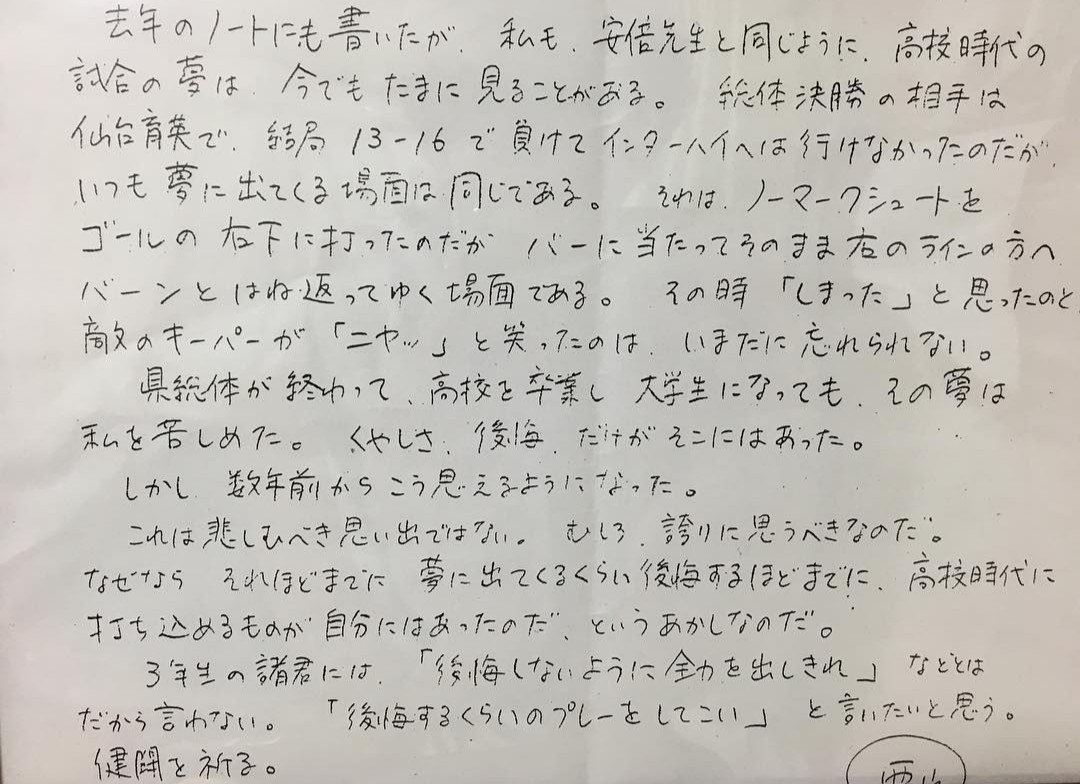 去年のノートにも書いたが、私も、安倍先生と同じように、高校時代の
試合の夢は、今でもたまに見ることがある。 総体決勝の相手は
仙台育英で、結局 13-16 で負けてインターハイへは行けなかったのだが、
いつも夢に出てくる場面は同じである。 それは、ノーマークシュートを
ゴールの右下に打ったのだが バーに当たってそのまま右のラインの方へ
バーンとはね返ってゆく場面である。 その時「しまった」と思ったのと、
敵のキーパーが「ニヤッ」と笑ったのは、いまだに忘れられない。
県総体が終わって、高校を卒業し 大学生になっても、その夢は
私を苦しめた。 くやしさ、後悔、だけがそこにはあった。
しかし、数年前からこう思えるようになった。
これは悲しむべき思い出ではない。 むしろ、誇りに思うべきなのだ。
なぜなら それほどまでに 夢に出てくるくらい後悔するほどまでに、高校時代に
打ち込めるものが自分にはあったのだ、というあかしなのだ。
3年生の諸君には、「後悔しないように全力を出しきれ」などとは
だから言わない。 「後悔するくらいのプレーをしてこい」 と言いたいと思う。
健闘を祈る。